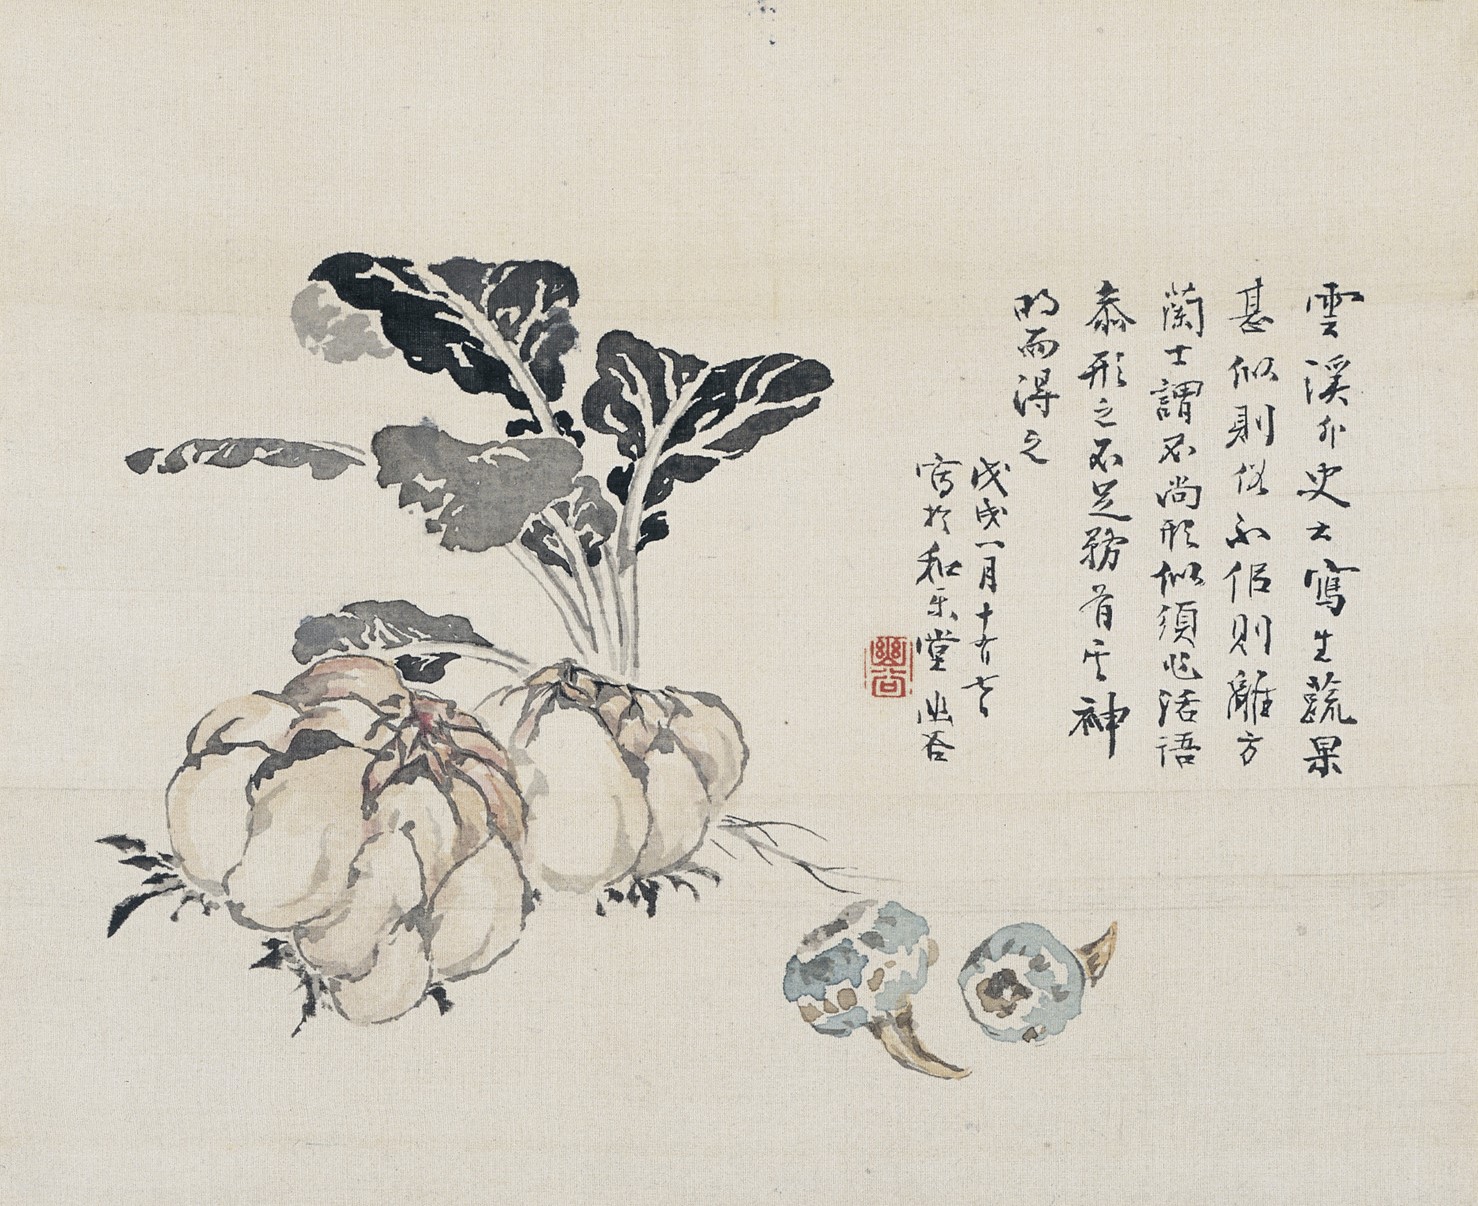 雲溪外史云寫生蔬果
甚似則俗不佀則離方
蘭士謂不尚形似須 活語
叅形之不足務肖其神
 而得之
戊戌一月十
寫於和樂堂 幽谷
幽谷